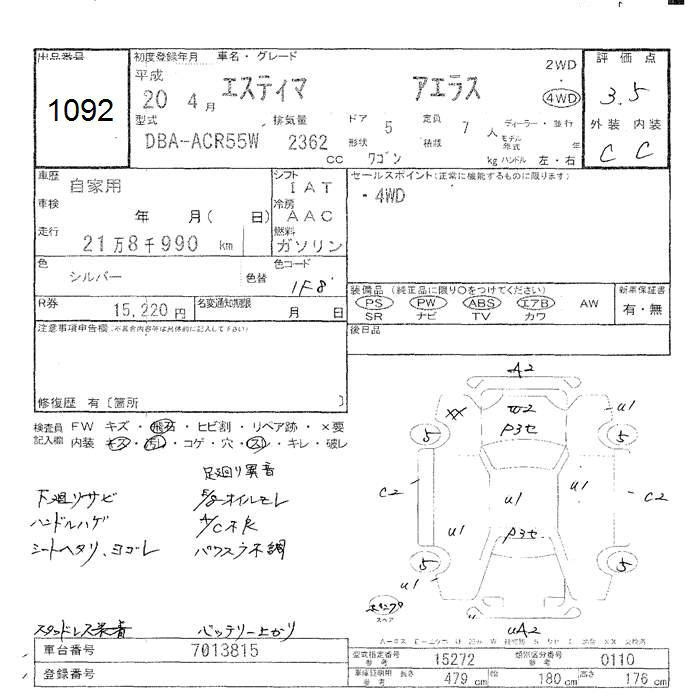 出品番号
1092
初度登録年月 車名・グレード
平成
20 4月 エスティマ アエラス
2WD
4WD
型式 排気量 ドア 5 定員 7人 ディーラー・並行
DBA-ACR55W 2362cc 形状 ワゴン 積載 kg モデル年式 年
ハンドル 左・右
評価点
3.5
外装 内装
C C
車歴 自家用
車検 年 月( 日)
走行 21万8千990 km
シフト IAT
冷房 AAC
燃料 ガソリン
セールスポイント(正常に機能するものに限ります)
・4WD
色 シルバー 色替
色コード 1F8
R券 15,220円 名変通知期限 月 日
装備品(純正品に限り○をつけてください)
PS PW ABS エアB AW
SR ナビ TV カワ
新車保証書
有・無
注意事項申告欄(不具合内容等は具体的に記入して下さい)
後日品
修復歴 有〔箇所 〕
検査員記入欄 FW キズ・飛石・ヒビ割・リペア跡・×要
内装 キズ・汚レ・コゲ・穴・スレ・キレ・破レ
足廻り異音
下廻りサビ
オイルモレ
ハンドルハゲ A/C不良
シートヘタリ、ヨゴレ パワスラ不調
スタッドレス装着 バッテリー上がり
A2
XX W2 U1
P3セ
5 5
C2 U1 U1 C2
U1 P3セ
5 5
U1
スペア
UA2
車台番号 7013815
登録番号
型式指定番号 参考 15272 類別区分番号 参考 0110
車庫証明用 参考 長さ 479 cm 幅 180 cm 高さ 176 cm